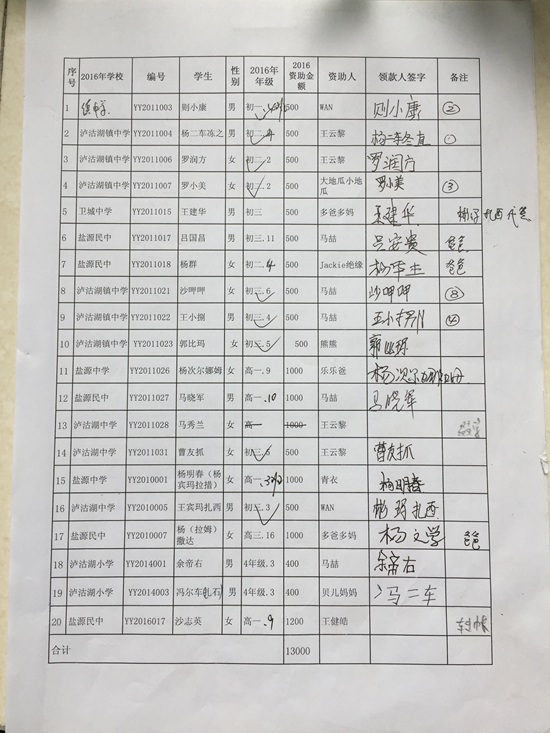 序号 2016年学校 编号 学生 性别 2016年年级 2016资助金额 资助人 领款人签字 备注
1 YY2011003 则小康 男 初一 500 WAN 则小康 ②
2 泸沽湖镇中学 YY2011004 杨二车冻之 男 初二.4 500 王云黎 杨二车冬直 ①
3 泸沽湖镇中学 YY2011006 罗润方 女 初二.2 500 王云黎 罗润方
4 泸沽湖镇中学 YY2011007 罗小美 女 初二.2 500 大地瓜小地瓜 罗小美 ③
5 卫城中学 YY2011015 王建华 男 初三 500 多爸多妈 王建华
6 盐源民中 YY2011017 吕国昌 男 初三.11 500 马喆 吕安贵 爸爸
7 盐源民中 YY2011018 杨群 女 初二.4 500 Jackie绝缘 爸爸
8 泸沽湖镇中学 YY2011021 沙呷呷 女 初三.6 500 马喆 沙呷呷 ⑧
9 泸沽湖镇中学 YY2011022 王小捌 男 初三.4 500 马喆 王小捌
10 泸沽湖镇中学 YY2011023 郭比玛 女 初三.5 500 熊熊
11 盐源中学 YY2011026 杨次尔娜姆 女 高一.9 1000 乐乐爸
12 盐源民中 YY2011027 马晓军 男 高一.10 1000 马喆 马晓军
13 泸沽湖中学 YY2011028 马秀兰 女 高一 1000 王云黎
14 泸沽湖中学 YY2011031 曹友抓 女 初三.5 500 王云黎 曹友抓
15 盐源中学 YY2010001 杨明春（杨宾玛拉措） 女 高一 1000 青衣 杨明春
16 泸沽湖中学 YY2010005 王宾玛扎西 男 初三.3 500 WAN 彬玛扎西
17 盐源民中 YY2010007 杨（拉姆）撒达 女 高三.16 1000 多爸多妈 杨文学 爸爸
18 泸沽湖小学 YY2014001 余帝右 男 4年级.3 400 马喆 余帝右
19 泸沽湖小学 YY2014003 冯尔车(扎石) 男 4年级.3 400 贝儿妈妈 冯二车
20 盐源民中 YY2016017 沙志英 女 高一.9 1200 王健皓
合计 13000